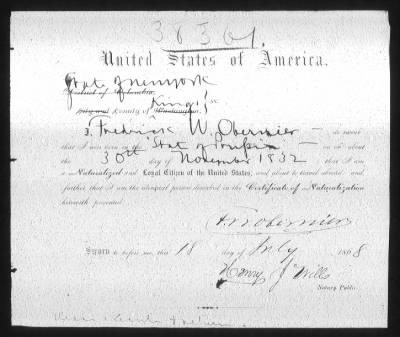 38361
United States of America.
State of New York
District of Columbia,
City and County of Washington, Kings ss
I, Fredrick W. Obernier — do swear
that I was born in the State of Prussia — on or about
the 30th day of November 1832 that I am
a Naturalized and Loyal Citizen of the United States, and about to travel abroad; and
further that I am the identical person described in the Certificate of Naturalization
herewith presented.
F W Obernier
Sworn to before me, this 18 day of July 1868
Henry J. Wills
Notary Public.